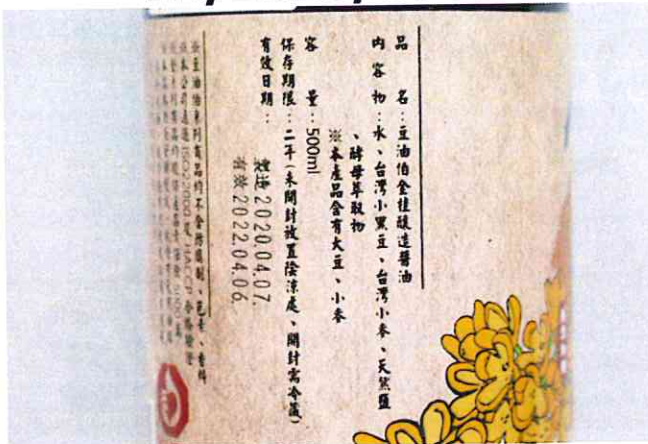 品名:豆油伯金桂釀造醬油
內容物:水、台灣小黑豆、台灣小麥、天然鹽
、酵母萃取物
※本產品含有大豆、小麥
容量:500ml
保存期限:二年(未開封放置陰涼處、開封需冷藏)
有效日期:
2020.04.07.
有效 2022.04.06.
※豆油伯系列商品均不含防腐劑、色素、香料
※本公司通過ISO22000及HACCP合格驗證